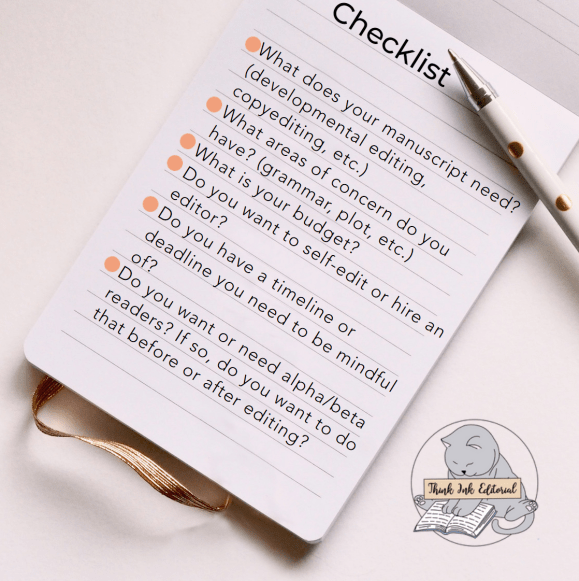 Checklist
What does your manuscript need?
(developmental editing,
copyediting, etc.)
What areas of concern do you
have? (grammar, plot, etc.)
What is your budget?
Do you want to self-edit or hire an
editor?
Do you have a timeline or
deadline you need to be mindful
of?
Do you want or need alpha/beta
readers? If so, do you want to do
that before or after editing?
Think Ink Editorial